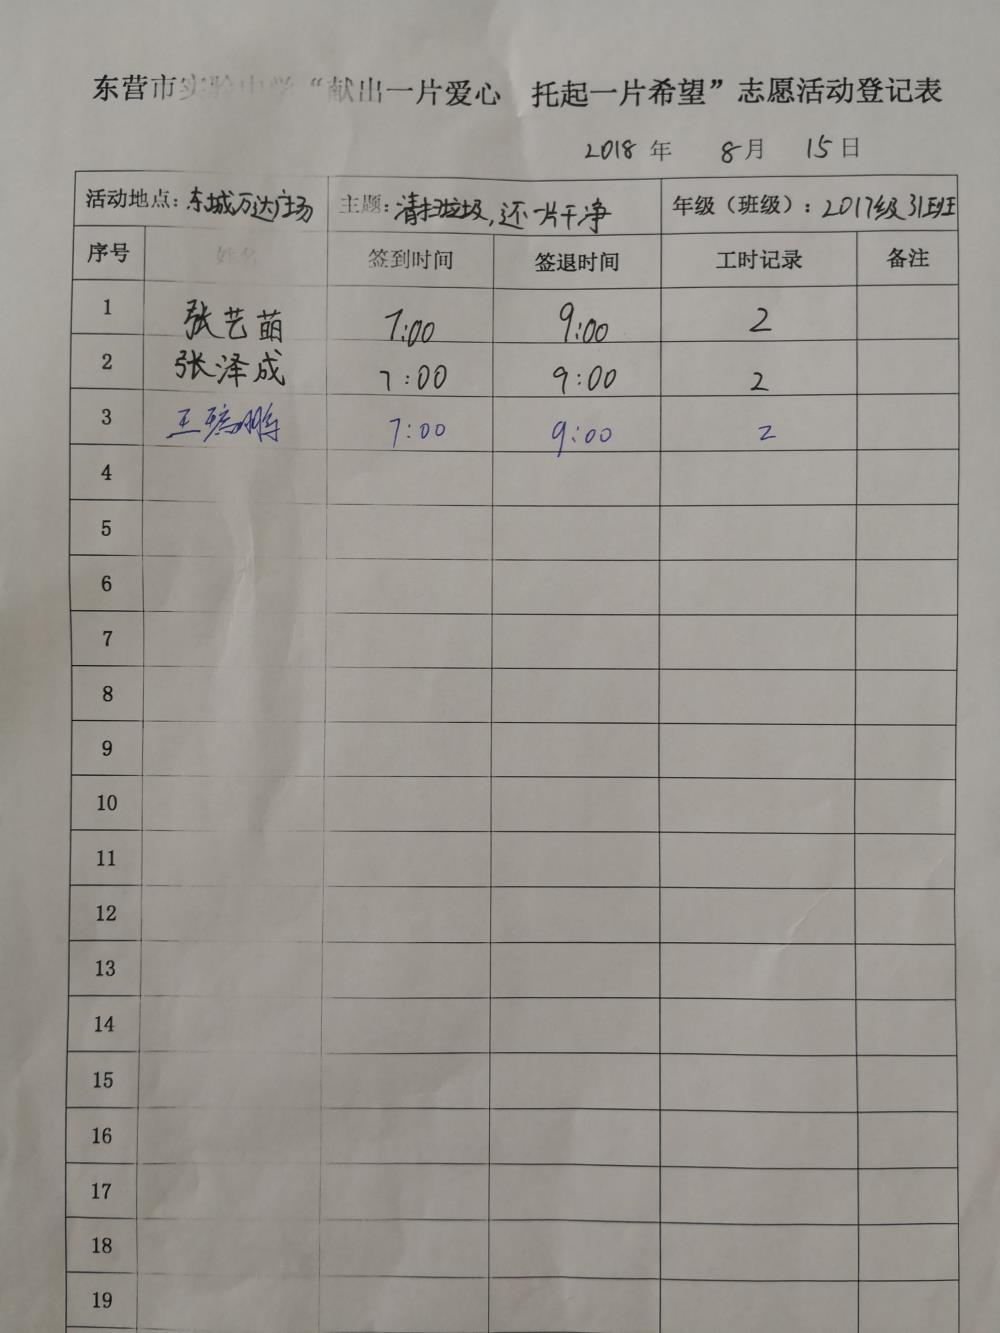 东营市实验中学“献出一片爱心 托起一片希望”志愿活动登记表
2018 年 8 月 15 日
活动地点：东城万达广场 主题：清扫垃圾，还一片干净 年级（班级）：2017级31班
序号 姓名 签到时间 签退时间 工时记录 备注
1 张艺萌 7:00 9:00 2
2 张泽成 7:00 9:00 2
3 王 7:00 9:00 2
4
5
6
7
8
9
10
11
12
13
14
15
16
17
18
19